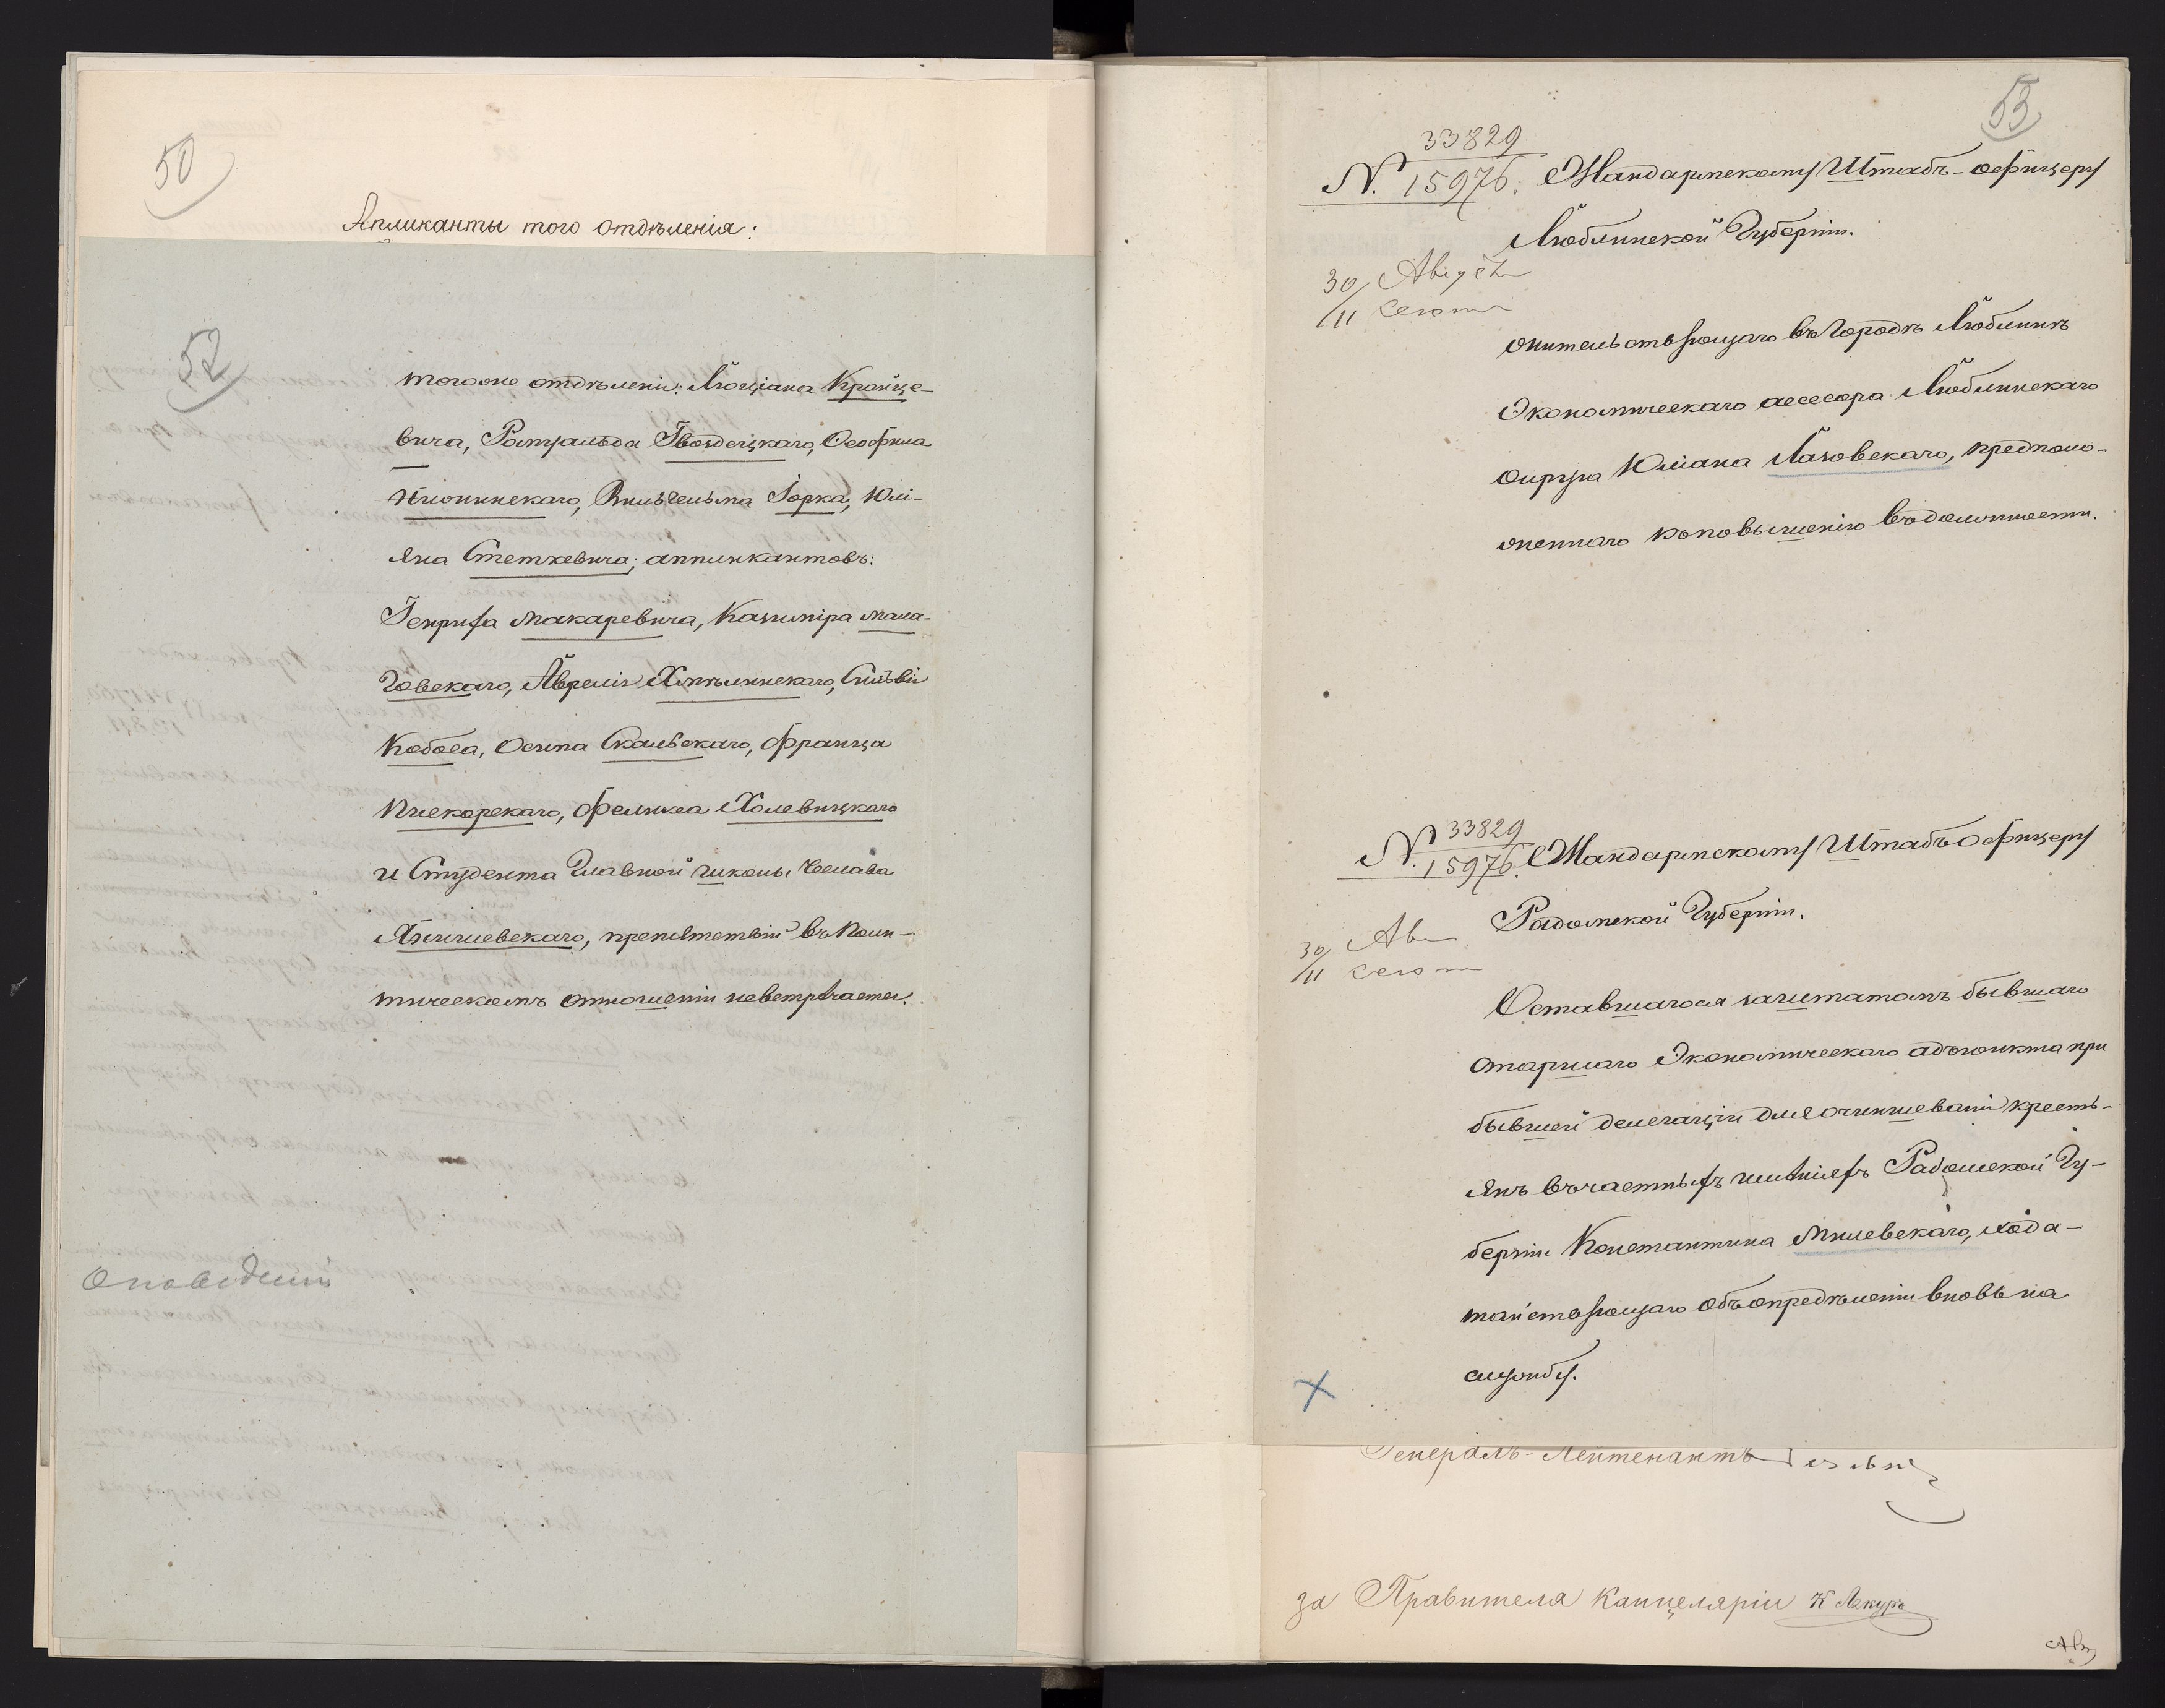 50
Апликанты того отдѣленія:
52
тогоже отдѣленія: Люціана Крайце-
вича, Ромуальда Гвоздецкаго, Ѳеофила
Клонинскаго, Вильгельма Іорка, Юлі-
яна Стеткевича; аппликантовъ:
Генриха Макаревича, Казиміра Мала-
говскаго, Аврелія Хмѣлинскаго, Сильвія
Кобоса, Осипа Скальскаго, Франца
Піекорскаго, Феликса Холевицкаго
и Студента Главной школы Чеслава
Янишевскаго, препятствій въ Поли-
тическомъ отношеніи невстрѣчается.
53
33829
N. 15976. Жандармскому Штабъ-офицеру
Люблинской Губерніи.
30/11 Августа
Сентя
жительствующаго въ городѣ Люблинѣ
Экономическаго ассесора Люблинскаго
округа Юліана Лазовскаго, предполо-
женнаго къ повышенію въ должности.
33829
N. 15976. Жандармскому Штабъ офицеру
Радомской Губерніи.
30/11 Ав
Сент
Оставшагося заштатомъ бывшаго
старшаго Экономическаго адъюнкта при
бывшей делегаціи для очиншеванія кресть-
янъ въ частныхъ имѣніяхъ Радомской Гу-
берніи Константина Милевскаго, хода-
тайствующаго объ опредѣленіи вновь на
службу.
Генералъ-Лейтенантъ
за Правителя Канцеляріи